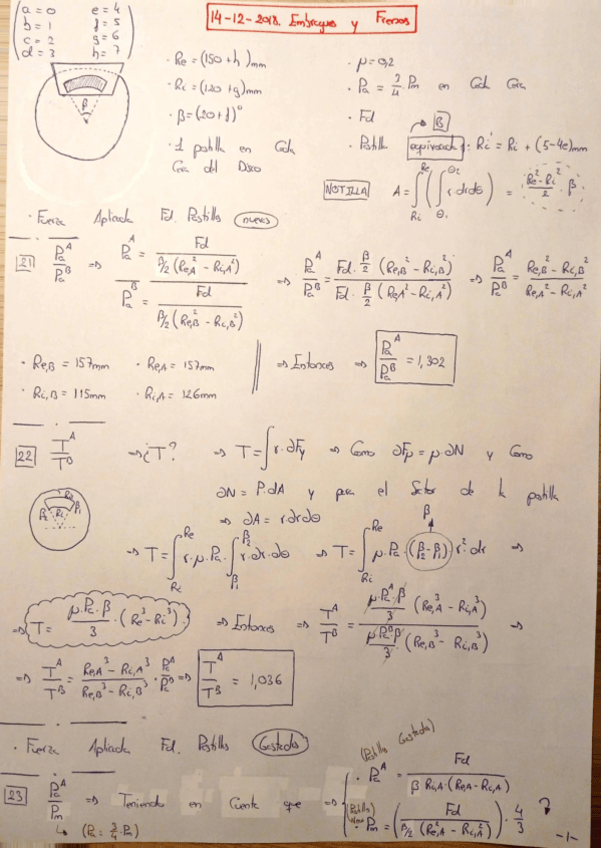 a = 0 e = 4
b = 1 f = 5
c = 2 g = 6
d = 3 h = 7
14-12-2018. Embragues y Frenos
β
· Re = (150 + h) mm
· Ri = (120 + g) mm
· β = (20 + f)°
· 1 pastilla en Cada
Cara del Disco
· μ = 0,2
· Pa = 3/4 · Pm en Cada Cara
· Fd
B
· Pastilla equivocada: Ri' = Ri + (5-4e) mm
NOTILLA A = ∫Ri^Re (∫θ1^θ2 r·dr dθ) = (Re² - Ri²)/2 · β
· Fuerza Aplicada Fd. Pastillas nuevas
21 Pa^A/Pa^B ⇒ Pa^A = Fd / (β/2 (Re,A² - Ri,A²)) / Pa^B = Fd / (β/2 (Re,B² - Ri,B²)) ⇒ Pa^A/Pa^B = Fd · β/2 (Re,B² - Ri,B²) / Fd · β/2 (Re,A² - Ri,A²) ⇒ Pa^A/Pa^B = (Re,B² - Ri,B²)/(Re,A² - Ri,A²)
· Re,B = 157mm · Re,A = 157mm
· Ri,B = 115mm · Ri,A = 126mm
⇒ Entonces ⇒ Pa^A/Pa^B = 1,302
22 T^A/T^B ⇒ ¿T? ⇒ T = ∫ r · ∂Fμ ⇒ Como ∂Fμ = μ·∂N y Como
∂N = P·dA y para el Sector de la pastilla
⇒ ∂A = r dr dθ
β2 Re Ri β1
β
⇒ T = ∫Ri^Re r·μ·Pa·∫β1^β2 r·dr·dθ ⇒ T = ∫Ri^Re μ·Pa·(β2-β1)·r²·dr ⇒
⇒ T = μ·Pa·β/3 · (Re³ - Ri³) ⇒ Entonces ⇒ T^A/T^B = μ·Pa^A·β/3 (Re,A³ - Ri,A³) / μ·Pa^B·β/3 (Re,B³ - Ri,B³) ⇒
⇒ T^A/T^B = (Re,A³ - Ri,A³)/(Re,B³ - Ri,B³) · Pa^A/Pa^B ⇒ T^A/T^B = 1,036
· Fuerza Aplicada Fd. Pastillas Gastadas
23 Pa^A/Pm ⇒ Teniendo en Cuenta que ⇒
↳ (Pa = 3/4 · Pm)
(Pastilla Gastada)
· Pa^A = Fd / (β Ri,A · (Re,A - Ri,A))
· Pm = (Fd / (β/2 (Re,A² - Ri,A²))) · 4/3
-1-